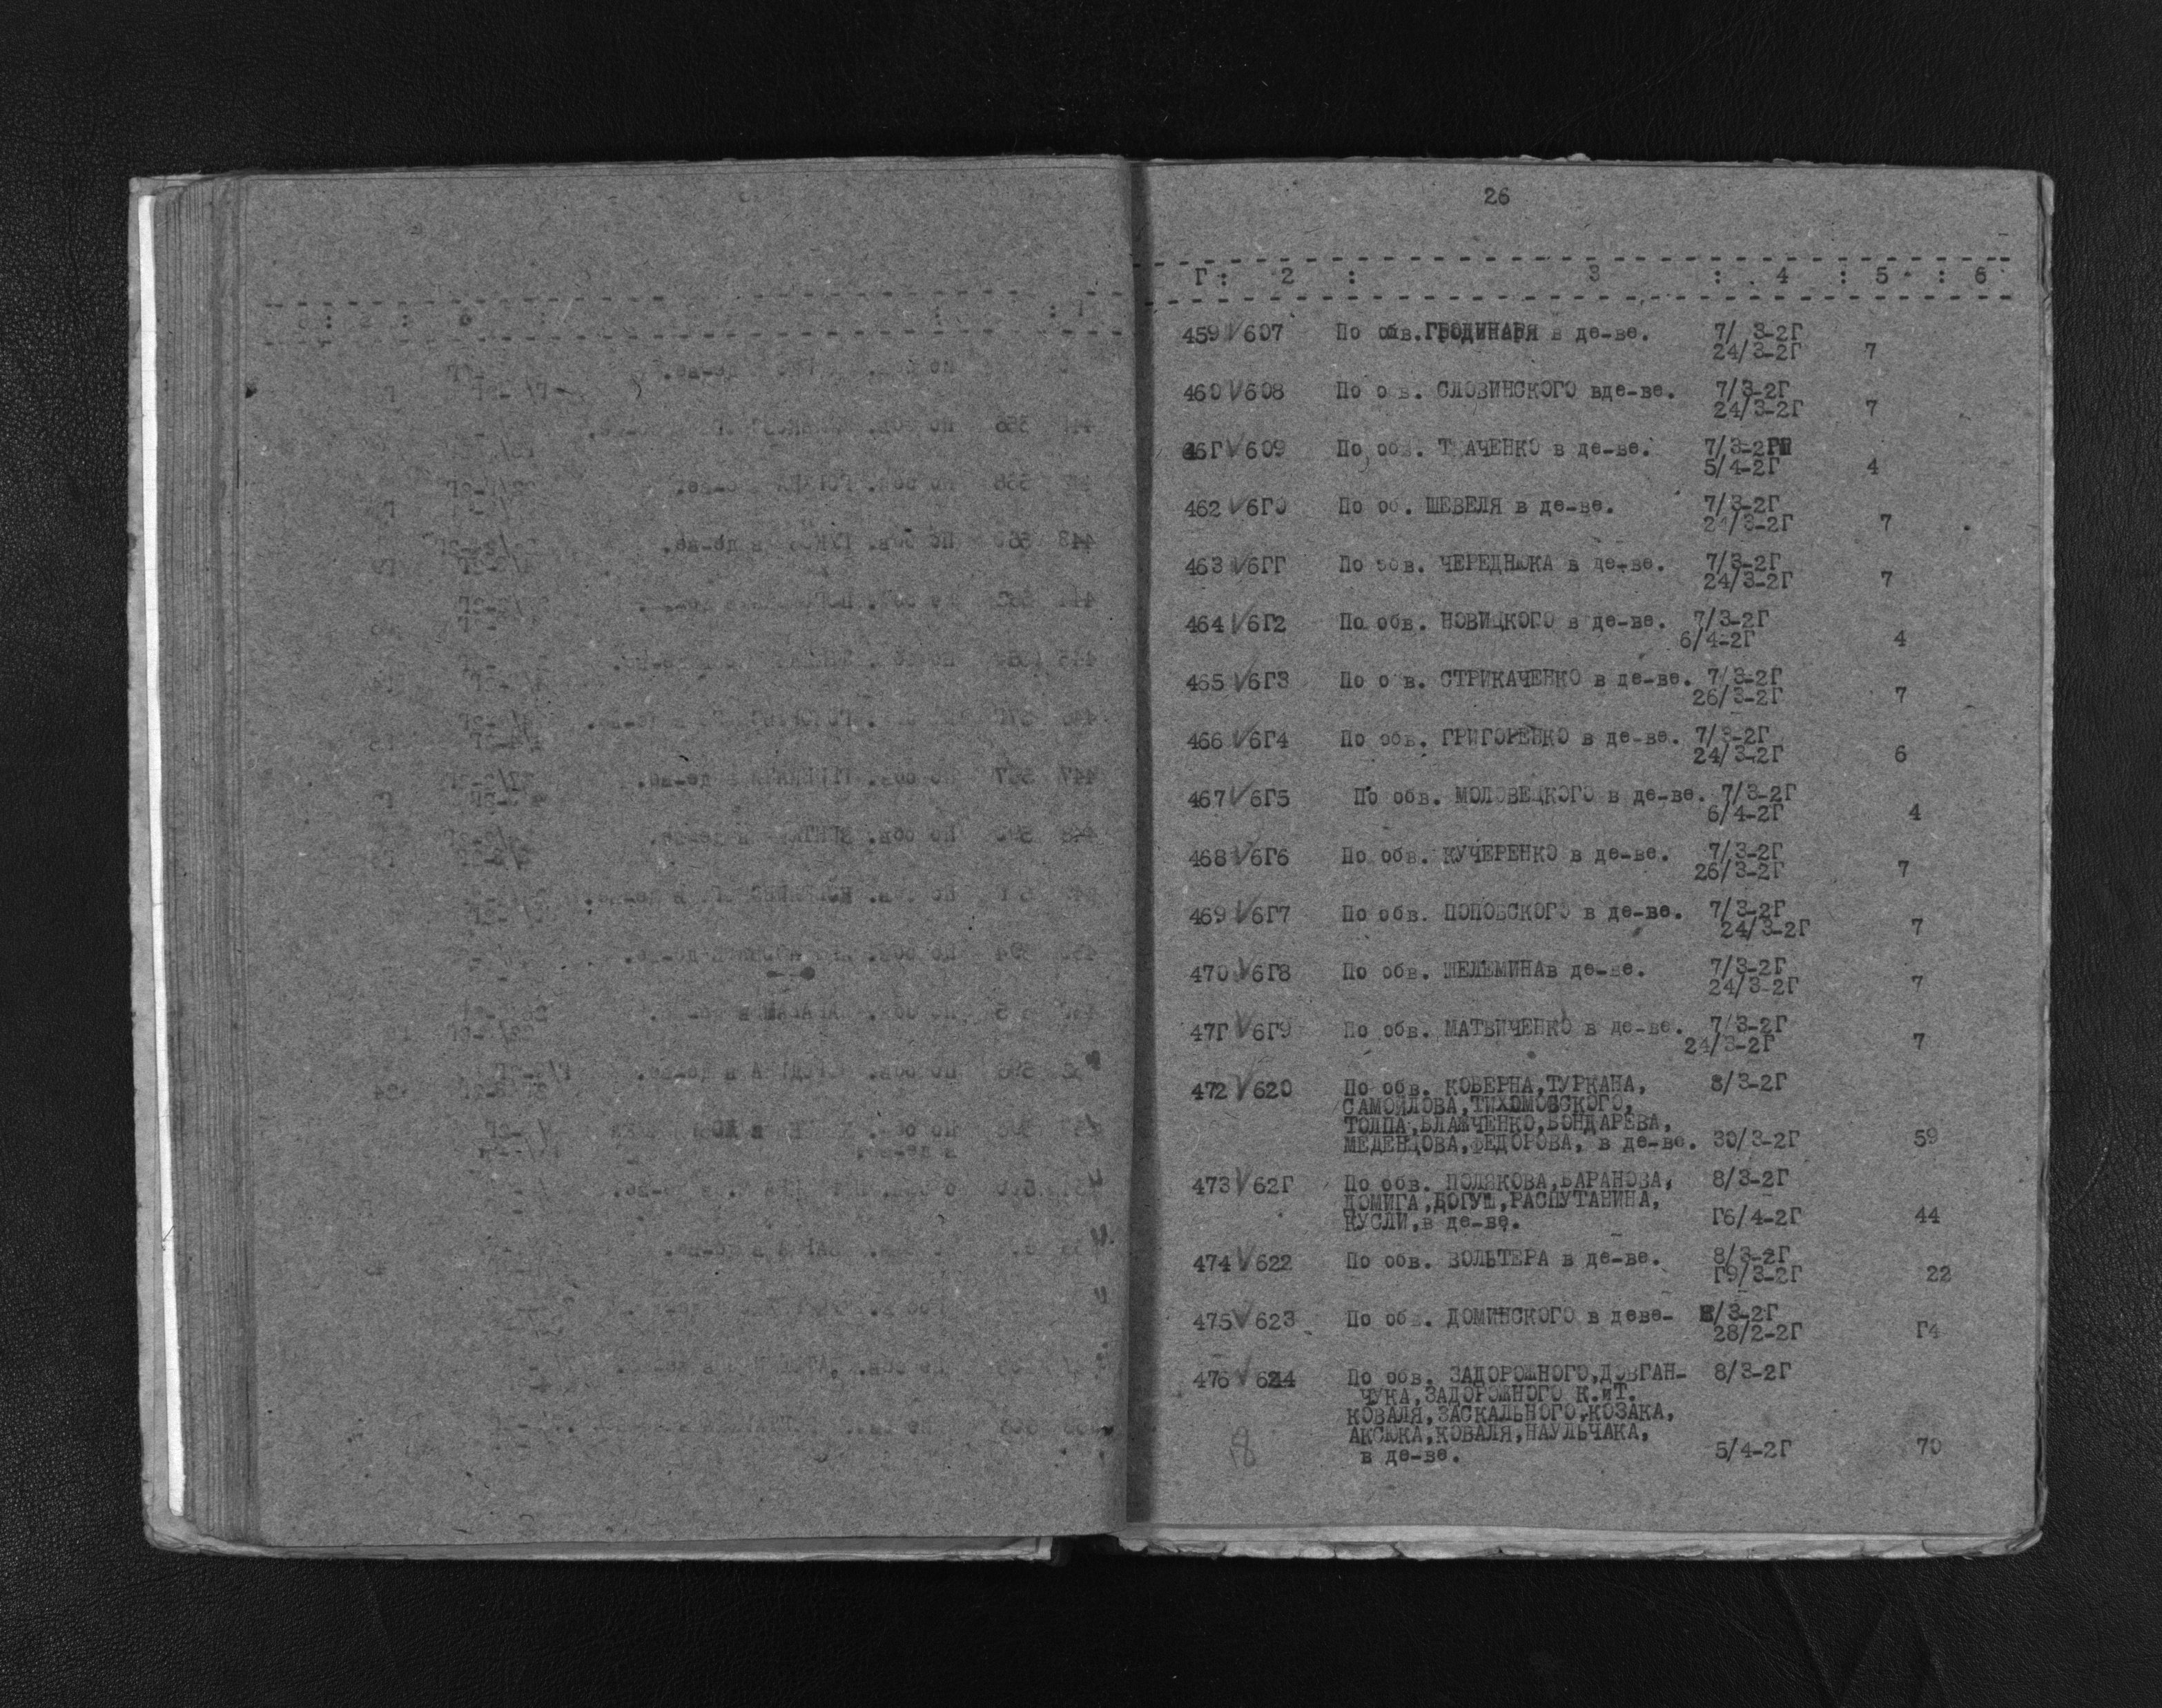 26
Г : 2 : 3 : 4 : 5 : 6
459 V 607 По обв. ГРОДИНАРЯ в де-ве. 7/ 3-2Г
24/3-2Г 7
460 V 608 По о в. СЛОВИНСКОГО вде-ве. 7/3-2Г
24/3-2Г 7
46Г V 609 По об . Т АЧЕНКО в де-ве. 7/3-2Г
5/4-2Г 4
462 V 6Г0 По об. ШЕВЕЛЯ в де-ве. 7/3-2Г
24/3-2Г 7
463 V 6ГГ По обв. ЧЕРЕДНЮКА в де-ве. 7/3-2Г
24/3-2Г 7
464 V 6Г2 По обв. НОВИЦКОГО в де-ве. 7/3-2Г
6/4-2Г 4
465 V 6Г3 По о в. СТРИКАЧЕНКО в де-ве. 7/3-2Г
26/3-2Г 7
466 V 6Г4 По обв. ГРИГОРЕНКО в де-ве. 7/3-2Г
24/3-2Г 6
467 V 6Г5 По обв. МОЛОВЕЦКОГО в де-ве. 7/3-2Г
6/4-2Г 4
468 V 6Г6 По обв. КУЧЕРЕНКО в де-ве. 7/3-2Г
26/3-2Г 7
469 V 6Г7 По обв. ПОПОВСКОГО в де-ве. 7/3-2Г
24/3-2Г 7
470 V 6Г8 По обв. ШЕЛЕМИНАв де-ве. 7/3-2Г
24/3-2Г 7
47Г V 6Г9 По обв. МАТВИЧЕНКО в де-ве. 7/3-2Г
24/3-2Г 7
472 V 620 По обв. КОВЕРНА,ТУРКАНА, 8/3-2Г
САМОЙЛОВА,ТИХОМОВСКОГО,
ТОЛПА,ВЛАЖЧЕНКО,БОНДАРЕВА,
МЕДЕНЦОВА,ФЕДОРОВА, в де-ве. 30/3-2Г 59
473 V 62Г По обв. ПОЛЯКОВА,БАРАНОВА, 8/3-2Г
ДОМИГА,БОГУШ,РАСПУТАНИНА,
КУСЛИ,в де-ве. Г6/4-2Г 44
474 V 622 По обв. ВОЛЬТЕРА в де-ве. 8/3-2Г
Г9/3-2Г 22
475 V 623 По об . ДОМИНСКОГО в деве- 8/3-2Г
28/2-2Г Г4
476 V 624 По обв. ЗАДОРОЖНОГО,ДОВГАН- 8/3-2Г
ЧУКА,ЗАДОРОЖНОГО К.иТ.
КОВАЛЯ,ЗАСКАЛЬНОГО,КОЗАКА,
АКСЮКА,КОВАЛЯ,НАУЛЬЧАКА,
в де-ве. 5/4-2Г 70